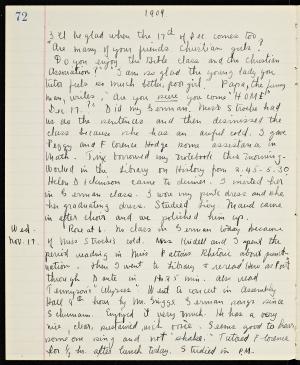 72
1909
I'll be glad when the 17th of Dec comes too.
"Are many of your friends Christian girls?
Do you enjoy the Bible class and the Christian
Association?" "I am so glad the young lady you
tutor feels so much better, poor girl." Papa, the funny
man, writes, "Are you sure you come "HOME"
Dec 17?" Did my German. Miss Stuckie had
us do the sentences and then dismissed the
class because she has an awful cold. I gave
Peggy and Florence Hodge some assistance in
Math. They borrowed my notebook this morning.
Worked in the Library on History from 2.45-5.30
Helen Dickinson came to dinner. I invited her
in German class. I wore my pink dress and she
her graduating dress. Studied Liny. Maud came
in after choir and we polished him up.
Wed.
Nov. 17.
Rose at 6. No class in German today because
of Miss Stuckies cold. Miss and I spent the
period reading in Miss Pattons Rhetoric about punct-
uation. Then I went to Library & reread Hen. or Port
through Dante in P45 min. also read
Tennyson's "Ulysses". Went to concert in Assembly
Hall 4th hour by Mr. Griggs. German songs since
Schumann. Enjoyed it very much. He has a very
nice, clear, sustained, rich voice. Seems good to hear
some one sing and not "shake." Tutored Florence
for ½ hr. after lunch today. Studied in P.M.